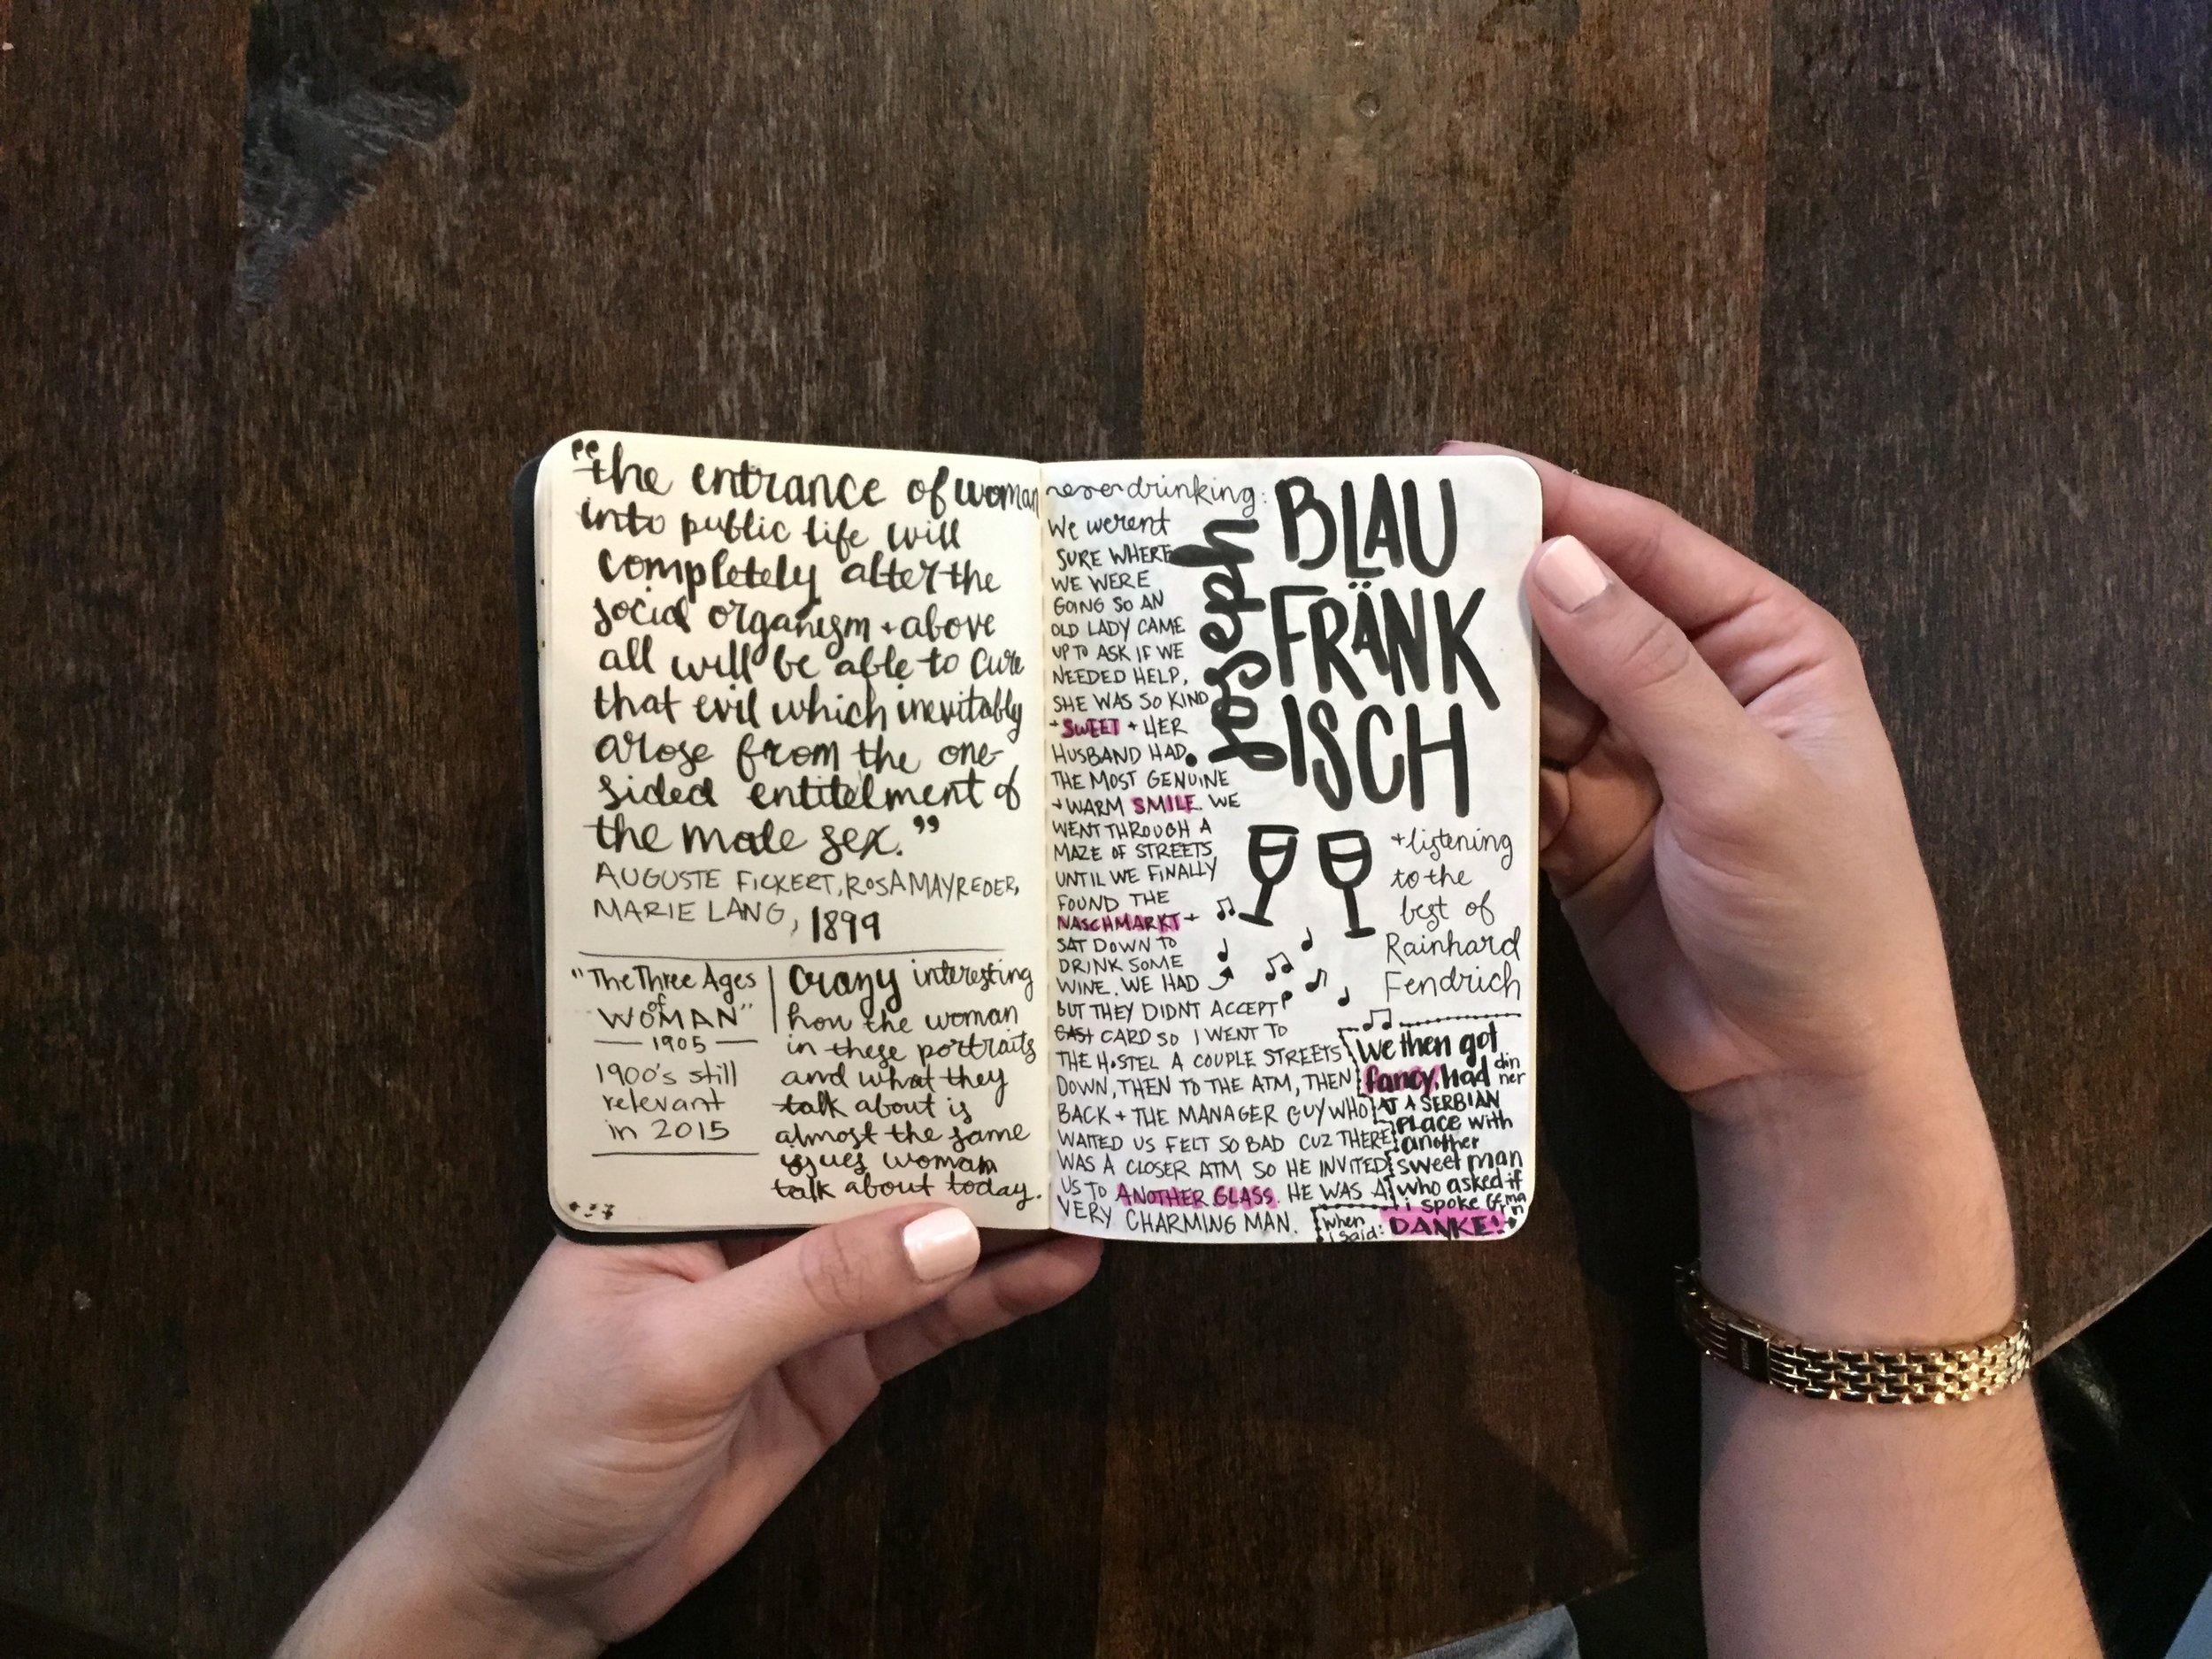 "the entrance of woman
into public life will
completely alter the
social organism + above
all will be able to cure
that evil which inevitably
arose from the one-
sided entitelment of
the male sex."
AUGUSTE FICKERT, ROSA MAYREDER,
MARIE LANG, 1899
"The Three Ages
of
WOMAN"
1905
1900's still
relevant
in 2015
Crazy interesting
how the woman
in these portraits
and what they
talk about is
almost the same
issues woman
talk about today.
drinking:
joseph
BLAU
FRÄNK
ISCH
We werent
SURE WHERE
WE WERE
GOING SO AN
OLD LADY CAME
UP TO ASK IF WE
NEEDED HELP,
SHE WAS SO KIND
+ SWEET + HER
HUSBAND HAD
THE MOST GENUINE
+ WARM SMILE. WE
WENT THROUGH A
MAZE OF STREETS
UNTIL WE FINALLY
FOUND THE
NASCHMARKT +
SAT DOWN TO
DRINK SOME
WINE. WE HAD
BUT THEY DIDNT ACCEPT
CARD SO I WENT TO
THE HOSTEL A COUPLE STREETS
DOWN, THEN TO THE ATM, THEN
BACK + THE MANAGER GUY WHO
WAITED US FELT SO BAD CUZ THERE
WAS A CLOSER ATM SO HE INVITED
US TO ANOTHER GLASS. HE WAS A
VERY CHARMING MAN.
+ listening
to the
best of
Rainhard
Fendrich
We then got
fancy, had din
ner
AT A SERBIAN
PLACE with
another
sweet man
who asked if
i spoke German
when
i said: DANKE!